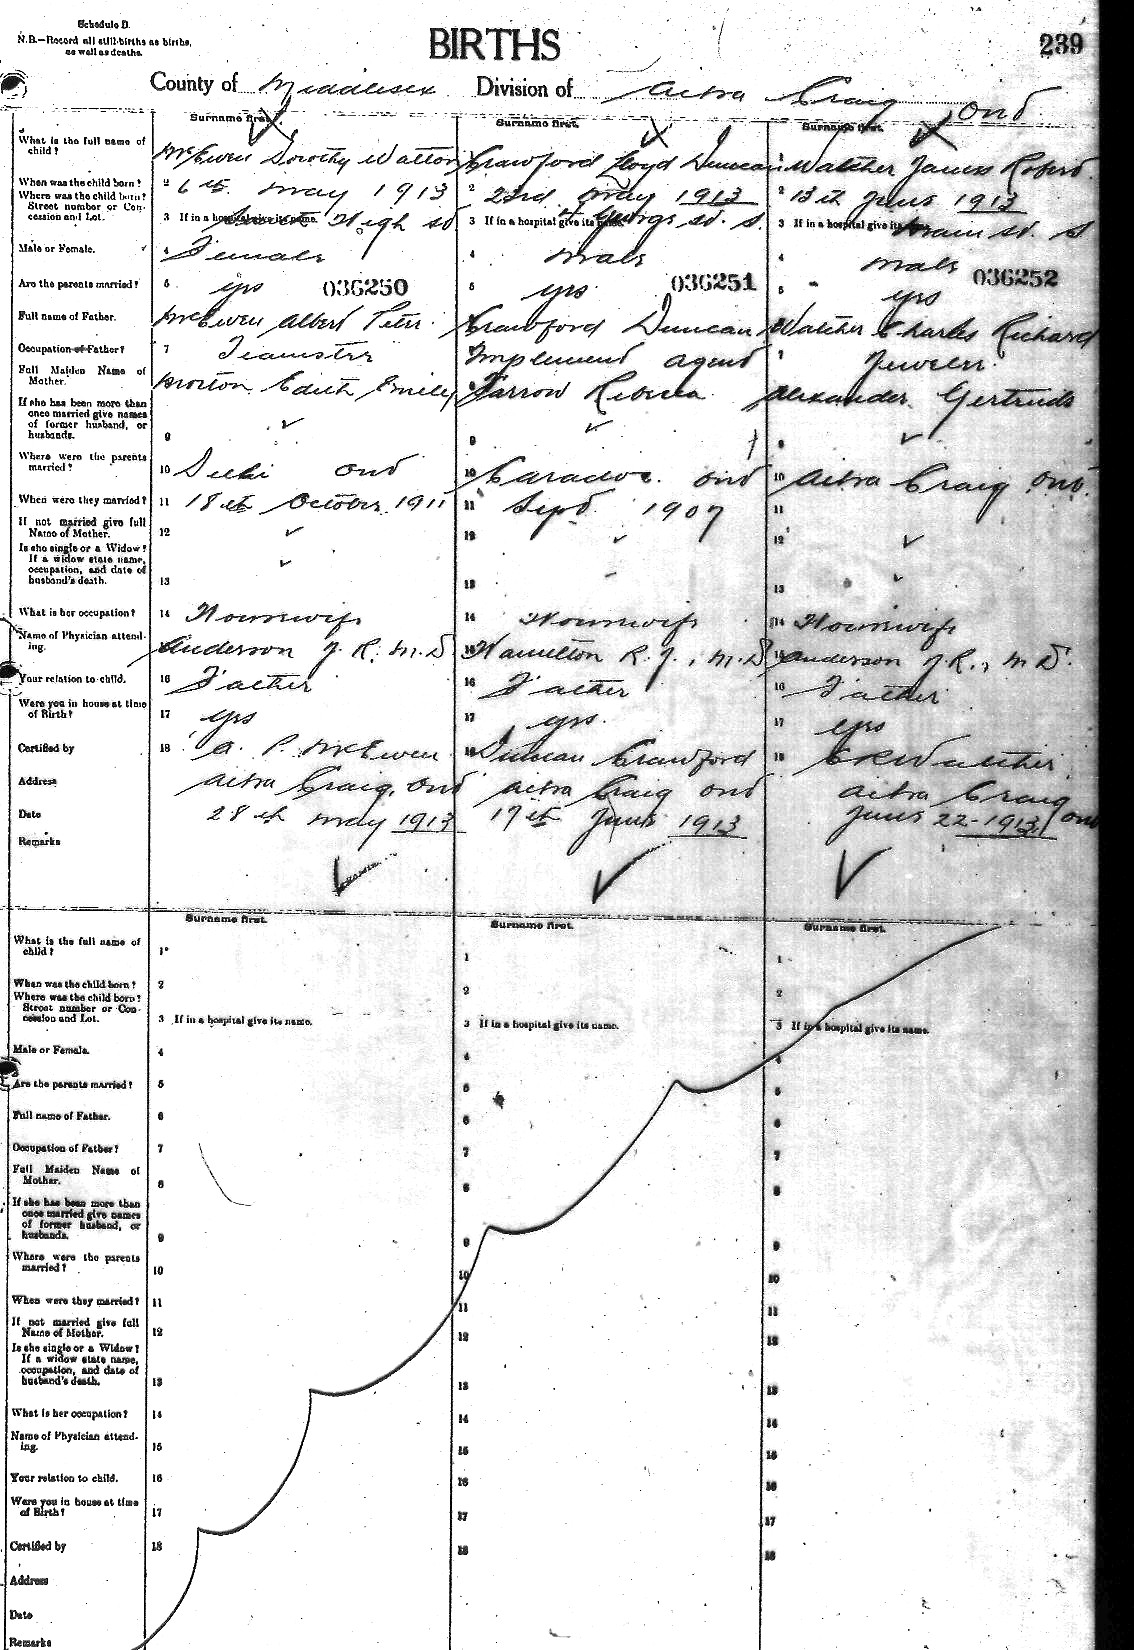 Schedule D.
N.B.—Record all still-births as births,
as well as deaths.
BIRTHS
239
County of Middlesex Division of Ailsa Craig Ont
Surname first. Surname first. Surname first.
What is the full name of
child?
McEwen Dorothy Watton Crawford Lloyd Duncan Watcher James Robert
When was the child born? 2 6th May 1913 2 23rd May 1913 2 13th June 1913
Where was the child born?
Street number or Con-
cession and Lot. 3 If in a hospital give its name. High St 3 If in a hospital give its name. George St. S. 3 If in a hospital give its name. Main St. S
Male or Female. 4 Female 4 Male 4 Male
Are the parents married? 5 yes 036250 5 yes 036251 5 yes 036252
Full name of Father. McEwen Albert Peter. Crawford Duncan Watcher Charles Richard
Occupation of Father? 7 Teamster Implement agent 7 Jeweler.
Full Maiden Name of
Mother. Morton Edith Emily Farrow Rebecca Alexander Gertrude
If she has been more than
once married give names
of former husband, or
husbands. 9 9 9
Where were the parents
married? 10 Delhi Ont 10 Caradoc Ont 10 Ailsa Craig Ont.
When were they married? 11 18th October 1911 11 Sept 1907 11
If not married give full
Name of Mother. 12 12 12
Is she single or a Widow?
If a widow state name,
occupation, and date of
husband's death. 13 13 13
What is her occupation? 14 Housewife 14 Housewife 14 Housewife
Name of Physician attend-
ing. Anderson J. R. M.D 15 Hamilton R. J., M.D 15 Anderson J.R., M.D.
Your relation to child. 16 Father 16 Father 16 Father
Were you in house at time
of Birth? 17 yes 17 yes. 17 yes
Certified by 18 A. P. McEwen 18 Duncan Crawford 18 C R Watcher
Address Ailsa Craig, Ont Ailsa Craig Ont Ailsa Craig Ont
Date 28th May 1913 17th June 1913 June 22-1913
Remarks
Surname first. Surname first. Surname first.
What is the full name of
child? 1 1 1
When was the child born? 2 2 2
Where was the child born?
Street number or Con-
cession and Lot. 3 If in a hospital give its name. 3 If in a hospital give its name. 3 If in a hospital give its name.
Male or Female. 4 4 4
Are the parents married? 5 5 5
Full name of Father. 6 6 6
Occupation of Father? 7 7 7
Full Maiden Name of
Mother. 8 8 8
If she has been more than
once married give names
of former husband, or
husbands. 9 9 9
Where were the parents
married? 10 10 10
When were they married? 11 11 11
If not married give full
Name of Mother. 12 12 12
Is she single or a Widow?
If a widow state name,
occupation, and date of
husband's death. 13 13 13
What is her occupation? 14 14 14
Name of Physician attend-
ing. 15 15 15
Your relation to child. 16 16 16
Were you in house at time
of Birth? 17 17 17
Certified by 18 18 18
Address
Date
Remarks